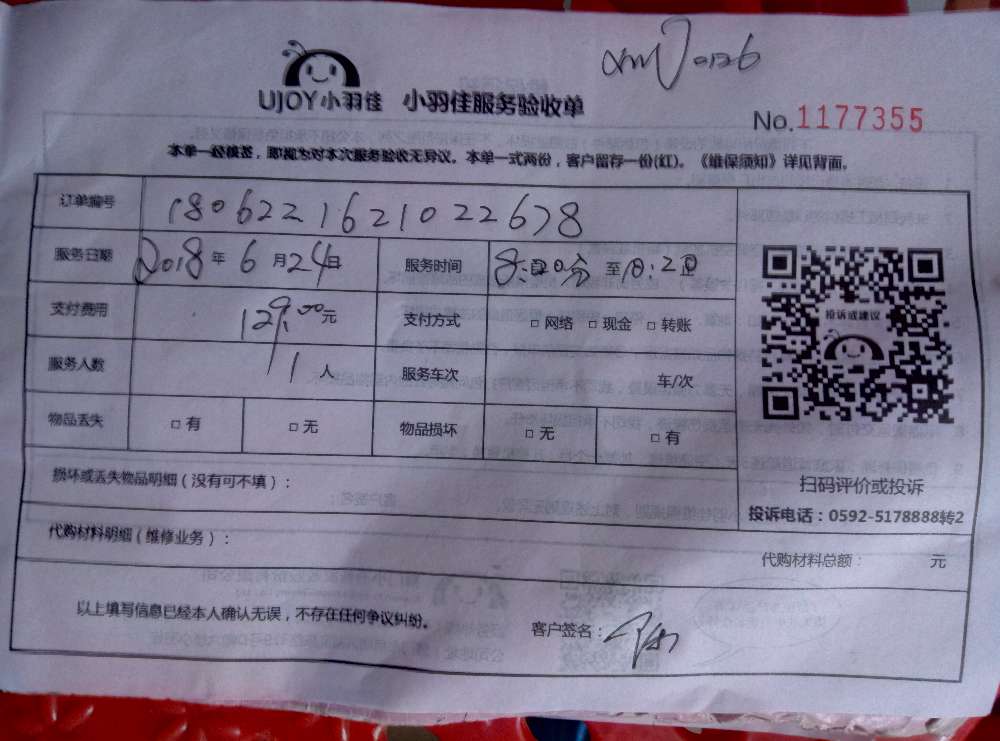 UJOY小羽佳 小羽佳服务验收单
No.1177355
本单一经核签，即视为对本次服务验收无异议。本单一式两份，客户留存一份(红)。《维保须知》详见背面。
订单编号 1806221621022678
服务日期 2018年6月24日 服务时间 8: 分 至 : 20
支付费用 129.00元 支付方式 □ 网络 □ 现金 □ 转账
服务人数 1 人 服务车次 车/次
物品丢失 □ 有 □ 无 物品损坏 □ 无 □ 有
投诉或建议
扫码评价或投诉
投诉电话：0592-5178888转2
损坏或丢失物品明细（没有可不填）：
代购材料明细（维修业务）： 代购材料总额： 元
以上填写信息已经本人确认无误，不存在任何争议纠纷。
客户签名：